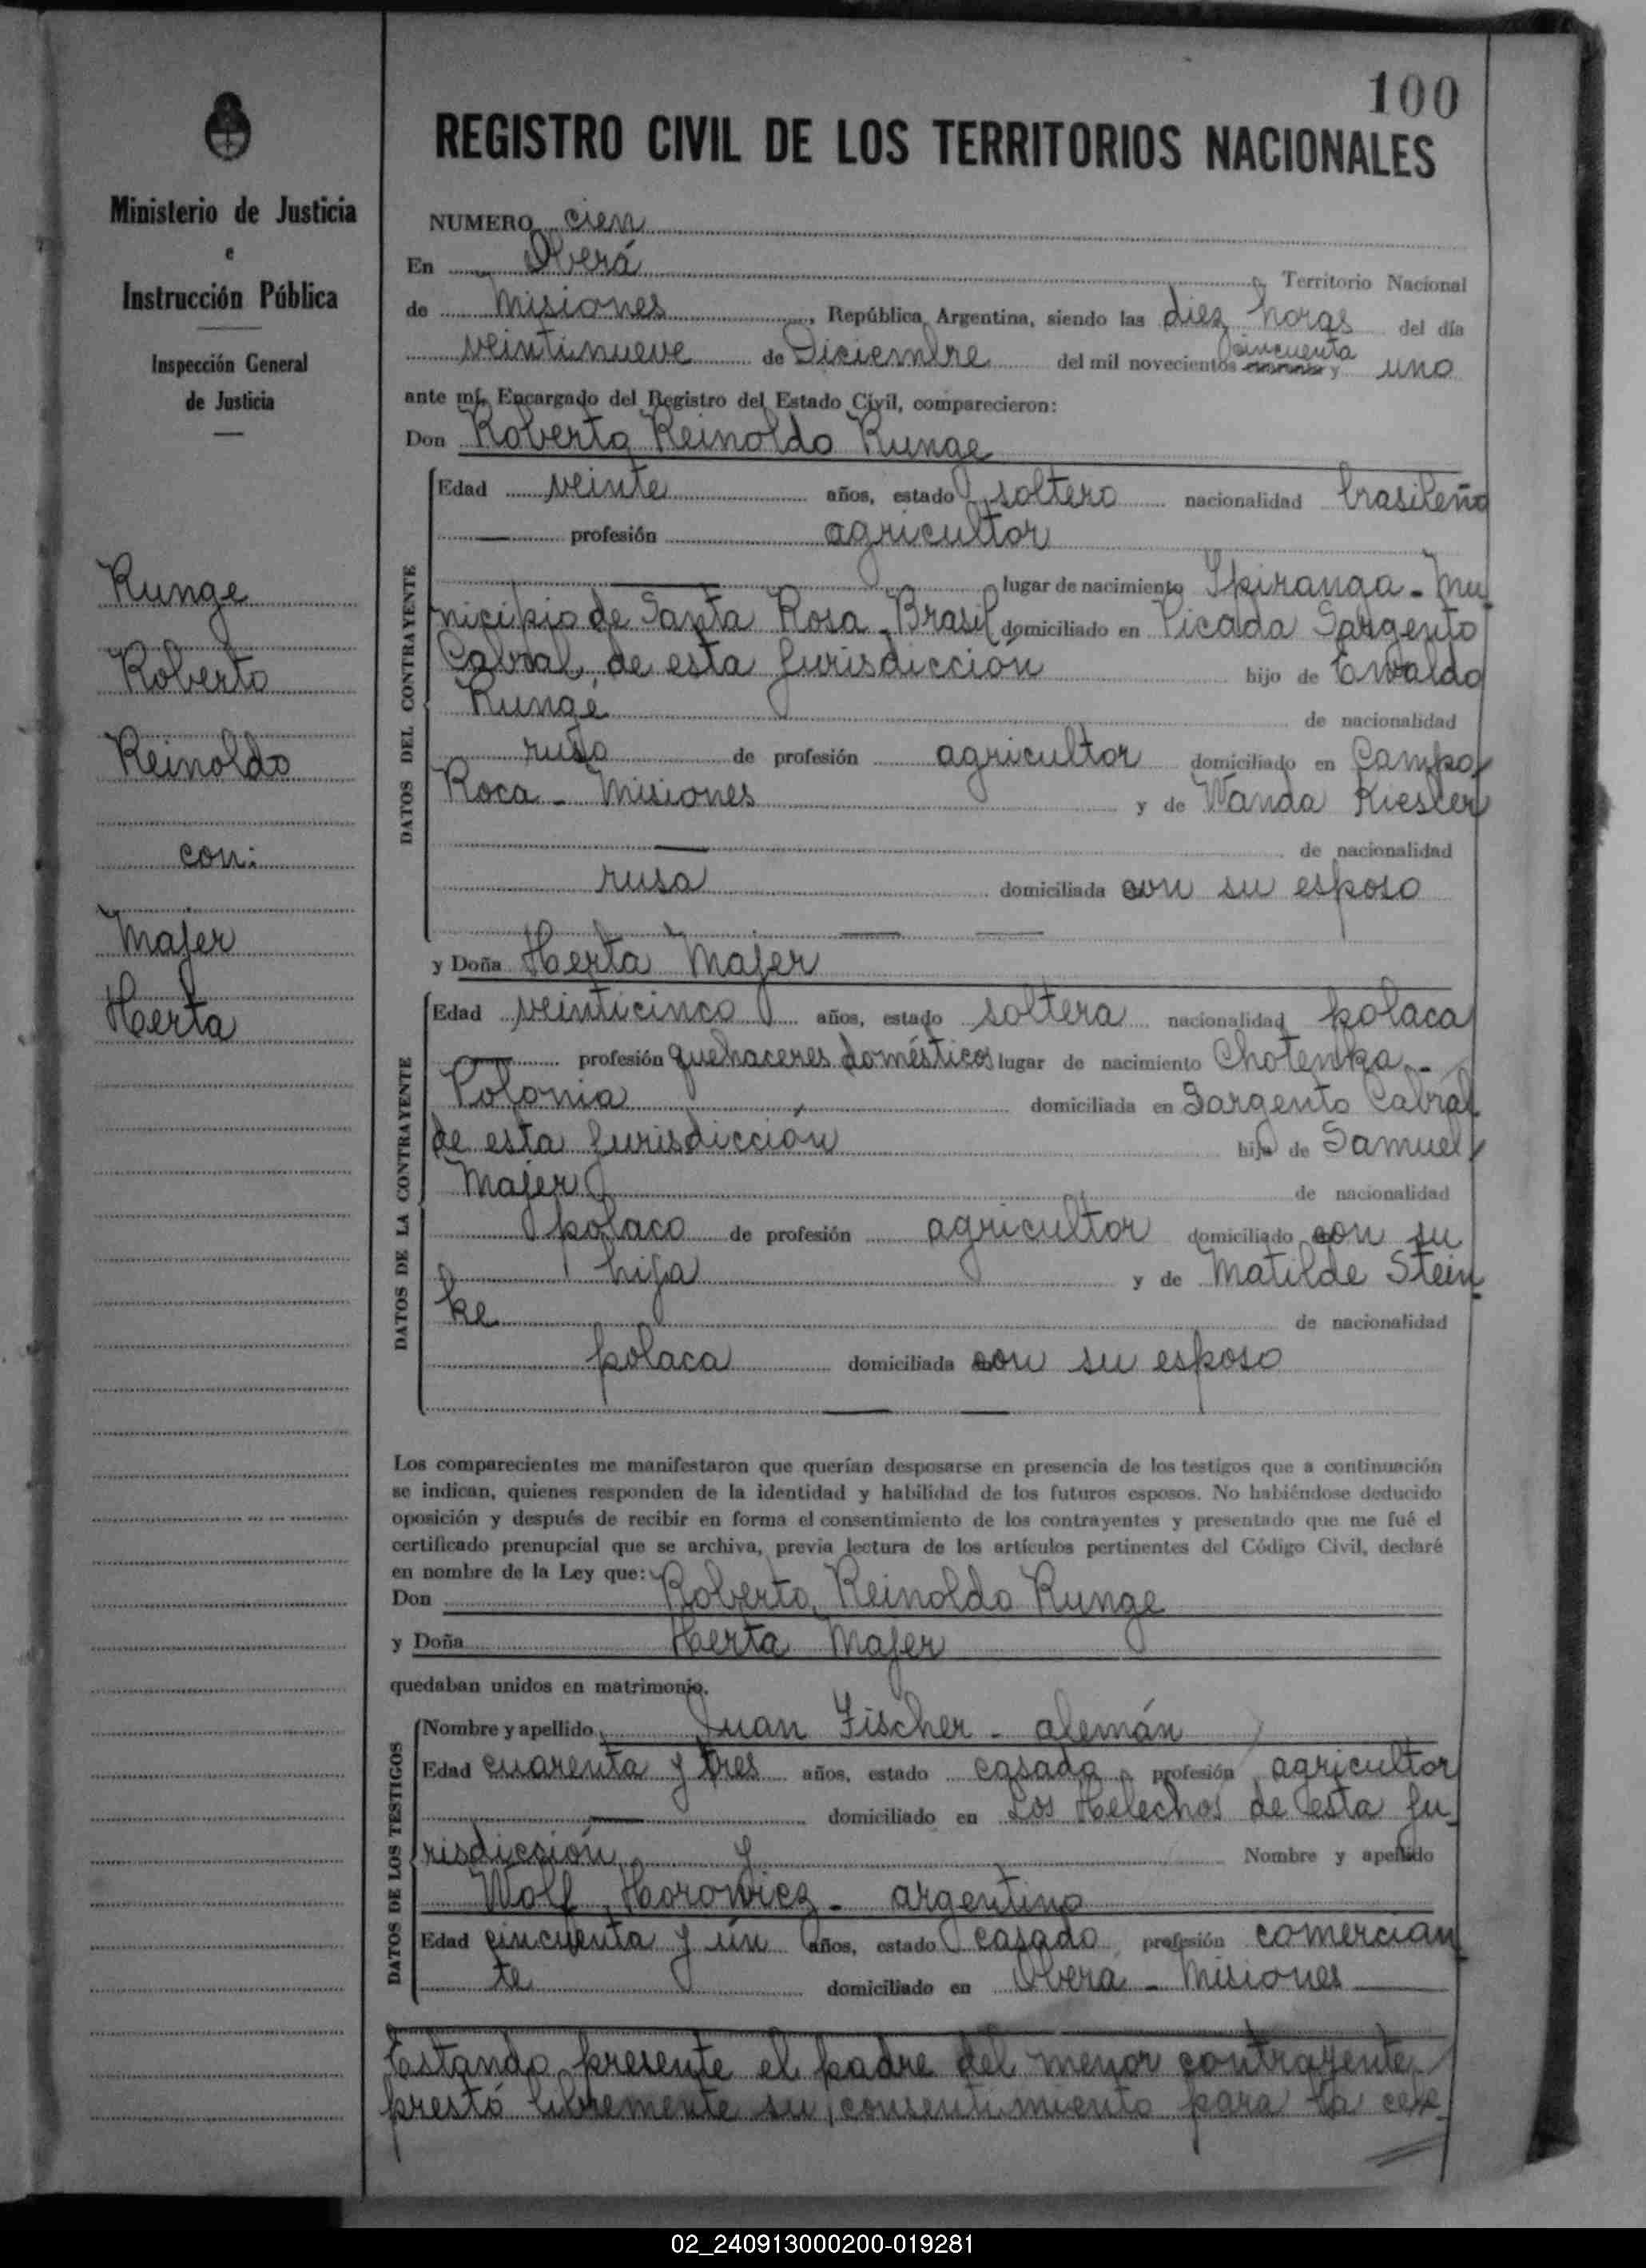 100
REGISTRO CIVIL DE LOS TERRITORIOS NACIONALES
Ministerio de Justicia
e
Instrucción Pública
Inspección General
de Justicia
Runge
Roberto
Reinoldo
con:
Majer
Herta
NUMERO cien
En Oberá Territorio Nacional
de Misiones, República Argentina, siendo las diez horas del día
veintinueve de Diciembre del mil novecientos cincuenta y uno
ante mí, Encargado del Registro del Estado Civil, comparecieron:
Don Roberto Reinoldo Runge
DATOS DEL CONTRAYENTE
Edad veinte años, estado soltero nacionalidad brasileña
profesión agricultor
lugar de nacimiento Ipiranga - Mu
nicipio de Santa Rosa - Brasil domiciliado en Picada Sargento
Cabral, de esta jurisdicción hijo de Ewaldo
Runge de nacionalidad
ruso de profesión agricultor domiciliado en Campo
Roca - Misiones y de Wanda Kiesler
de nacionalidad
rusa domiciliada con su esposo
y Doña Herta Majer
DATOS DE LA CONTRAYENTE
Edad veinticinco años, estado soltera nacionalidad polaca
profesión quehaceres domésticos lugar de nacimiento Chotenka -
Polonia domiciliada en Sargento Cabral
de esta jurisdicción hija de Samuel
Majer de nacionalidad
polaco de profesión agricultor domiciliado con su
hija y de Matilde Stein
ke de nacionalidad
polaca domiciliada con su esposo
Los comparecientes me manifestaron que querían desposarse en presencia de los testigos que a continuación
se indican, quienes responden de la identidad y habilidad de los futuros esposos. No habiéndose deducido
oposición y después de recibir en forma el consentimiento de los contrayentes y presentado que me fué el
certificado prenupcial que se archiva, previa lectura de los artículos pertinentes del Código Civil, declaré
en nombre de la Ley que:
Don Roberto Reinoldo Runge
y Doña Herta Majer
quedaban unidos en matrimonio.
DATOS DE LOS TESTIGOS
Nombre y apellido Juan Fischer - alemán
Edad cuarenta y tres años, estado casado profesión agricultor
domiciliado en Los Helechos de esta ju
risdicción y Nombre y apellido
Wolf Horowicz - argentino
Edad cincuenta y ún años, estado casado profesión comercian
te domiciliado en Oberá - Misiones
Estando presente el padre del menor contrayente,
prestó libremente su consentimiento para la cele
02_240913000200-019281